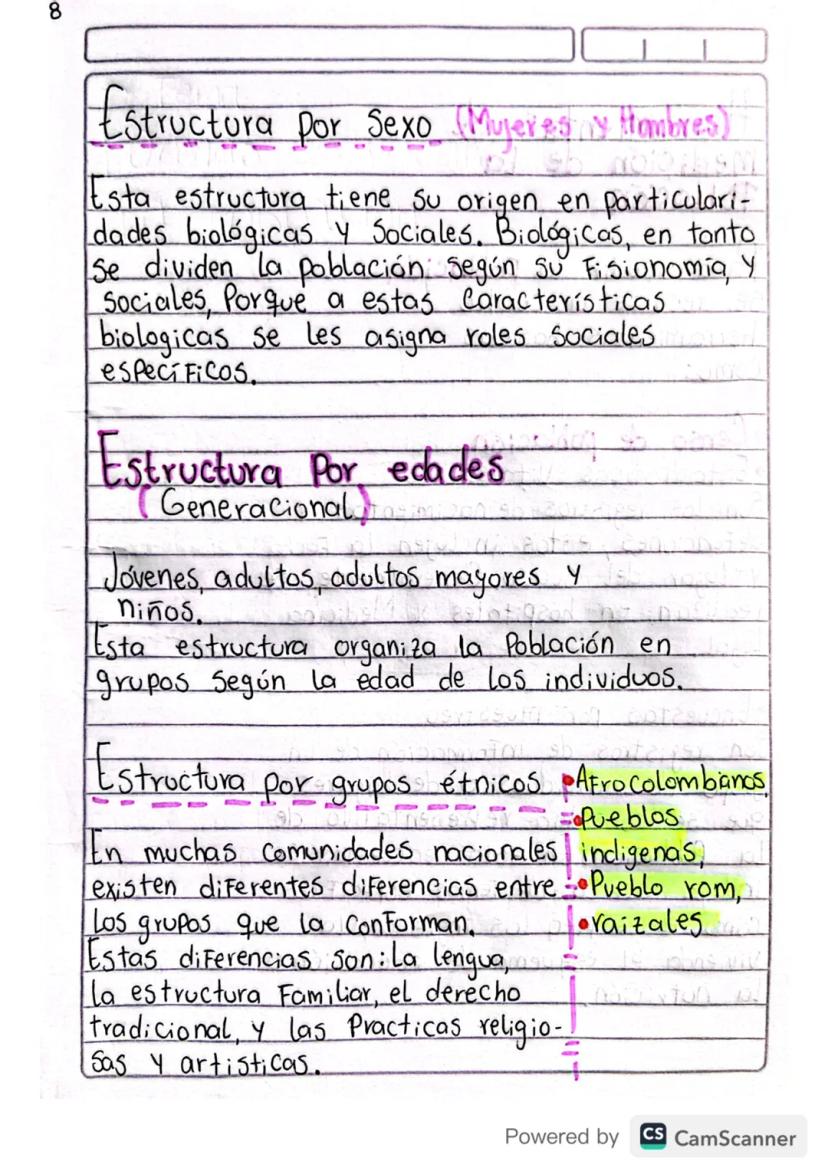 8
Estructura por sexo (Mujeres y Hombres)
Esta estructura tiene su origen en particulari-
dades biológicas y sociales. Biológicas, en tanto
se dividen la población según su fisionomia, y
sociales, porque a estas características
biologicas se les asigna roles sociales
específicos.
Estructura por edades
(Generacional)
Jóvenes, adultos, adultos mayores y
niños.
Esta estructura organiza la población en
grupos según la edad de los individuos.
Estructura por grupos étnicos
En muchas comunidades nacionales
existen diferentes diferencias entre
los grupos que la conforman.
Estas diferencias son: la lengua,
la estructura familiar, el derecho
tradicional, y las practicas religio-
sas y artisticas.
• Afrocolombianos
• Pueblos
indigenas,
• Pueblo rom,
• raizales
Powered by CS CamScanner